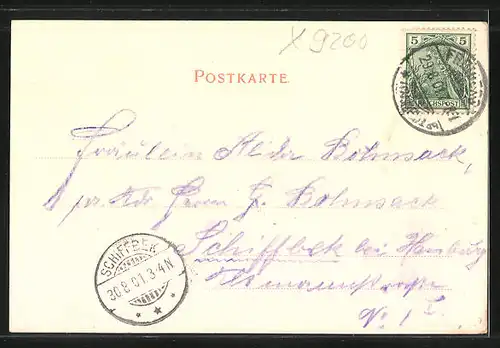 X 9200
5 5
REICHSPOST
29.8.01
POSTKARTE.
Fräulein Alida Bohnsack,
pr. Adr. Herrn J. Bohnsack
Schiffbek bei Hamburg
No. 1 I.
SCHIFFBEK
30.8.01.3-4N